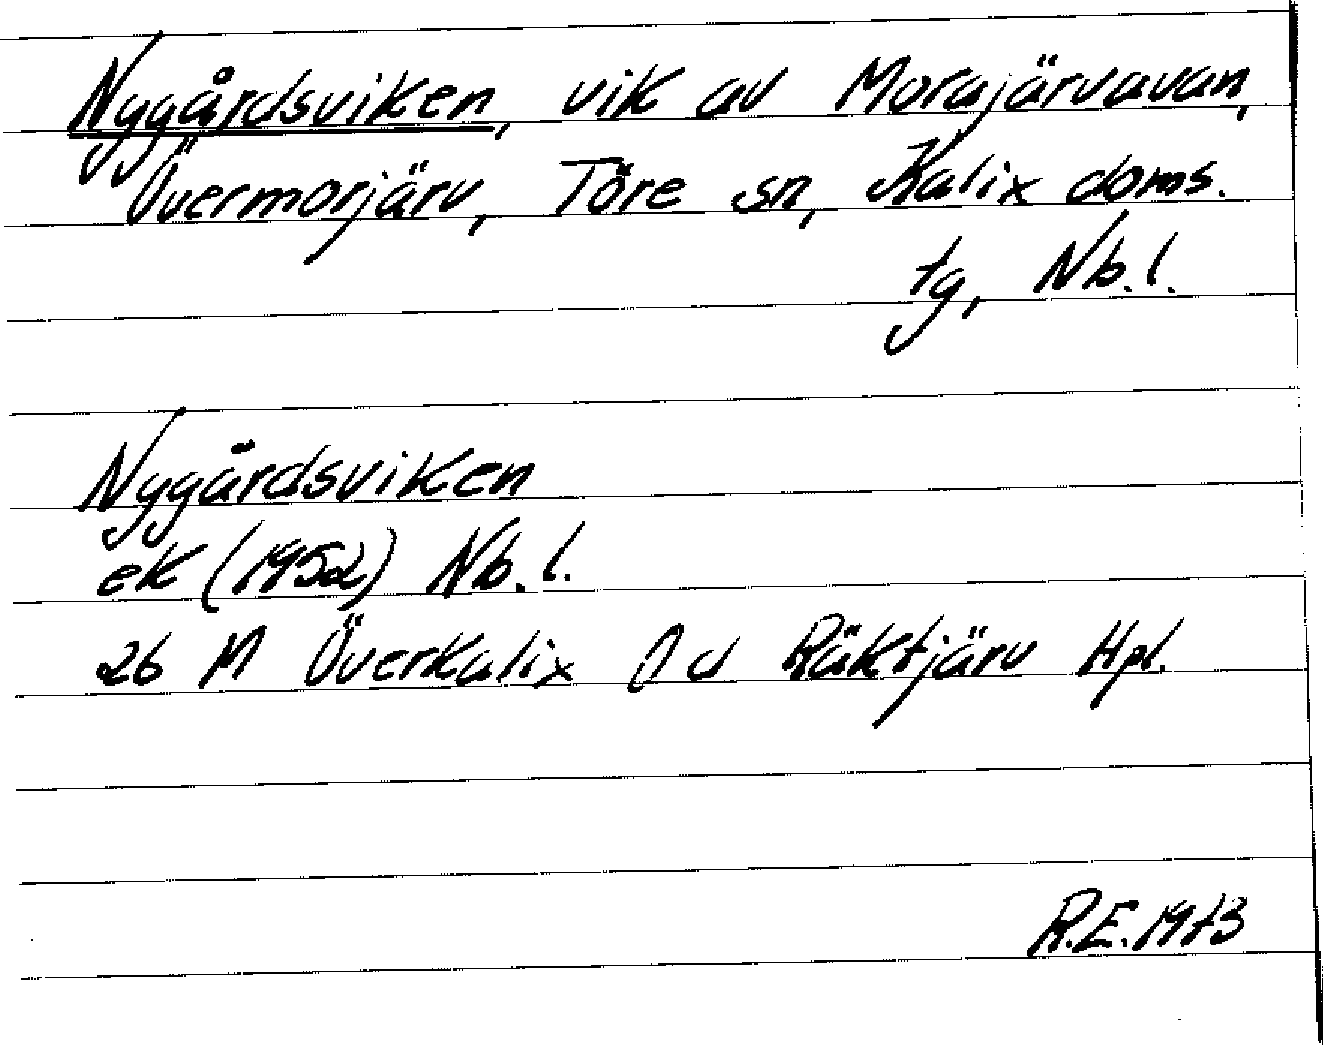 Nygårdsviken, vik av Morajärvavan,
Övermorjärv, Töre sn, Kalix doms.
tg, Nb.l.
Nygårdsviken
ek (1952) Nb.l.
26 M Överkalix Räktjärv Hpl.
R.E. 1973